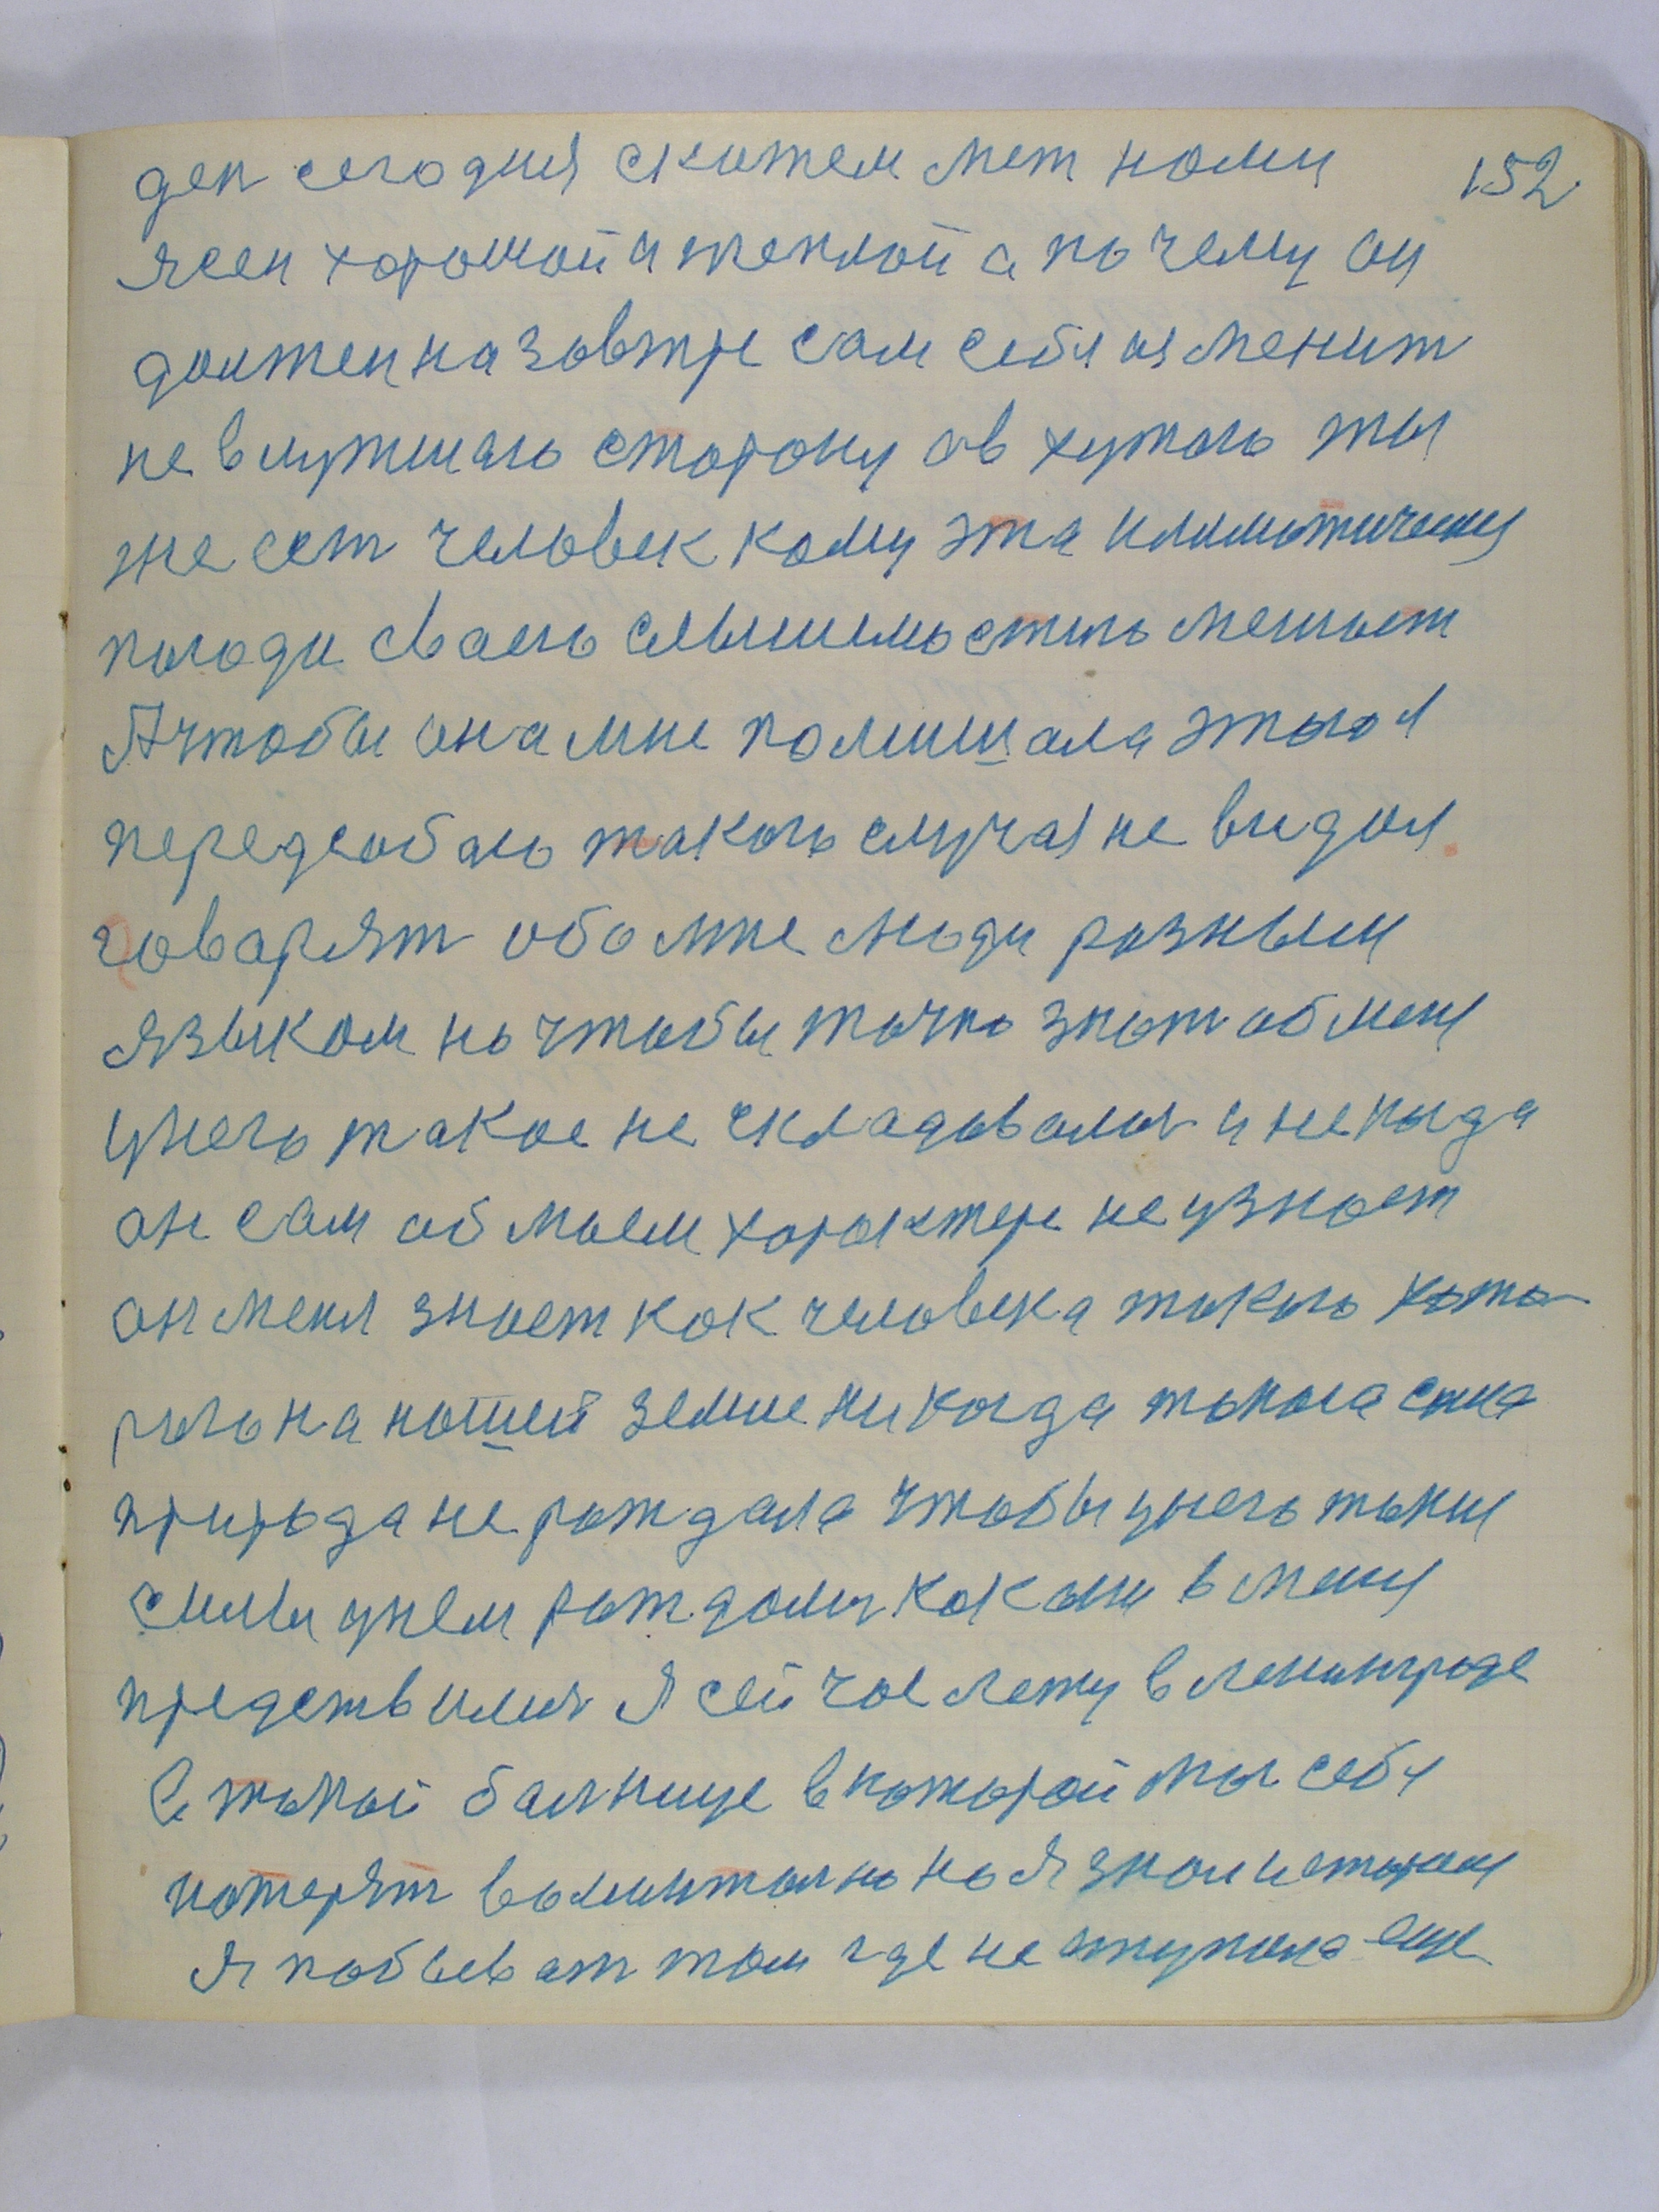 152
ден сегодня скажем меж нами
ясен хорошой и теплой а почему он
должен на завтре сам себя изменит
не влутшаю сторону а в хутшаю ты
же ест человек кому эта климотическия
погоди сваею слышимостию мешает
А чтобы она мне помишала этого я
передсобаю такого случая не видол
говарят обо мне люди розным
языком но чтобы точно знат об мене
унего такое не складовалос и некогда
он сам об моем характере не узноет
он меня знает как человека такого кото
рого на нашей земле никогда такога сина
природа не рождала чтобы унего такие
силы унем рождалис как они в мене
предствилис Я сейчас лежу в ленинграде
в такой балнице в которой мы себя
потерят моя знаю история
Я побыват там где не ступала еще